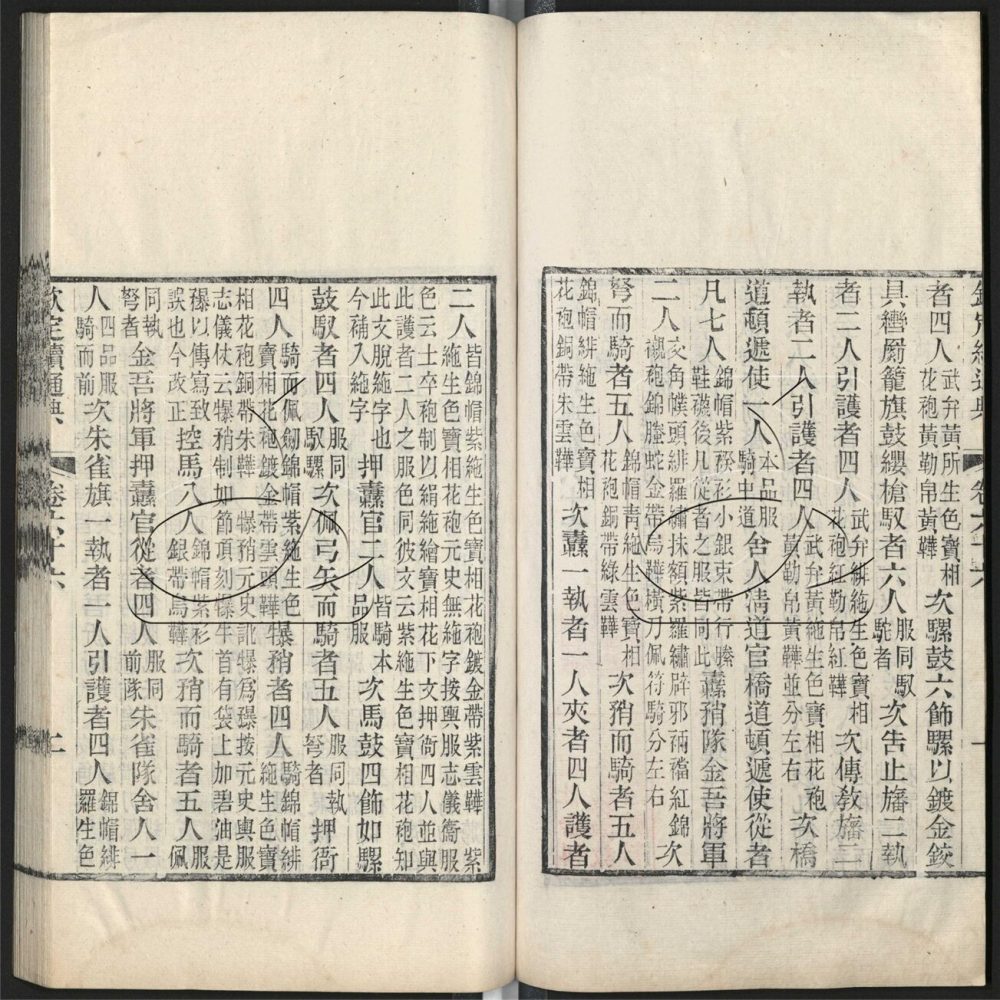 者四人武弁黃所生色寶相花袍黃勒帛黃鞾次騾鼓六飾騾以鍍金鉸
具轡罽籠旗鼓纓槍馭者六人服同馭駝者次告止旛二執
者二人引護者四人武弁緋絁生色寶相花袍紅勒帛紅鞾次傳敎旛二
執者二人引護者四人武弁黃絁生色寶相花袍黃勒帛黃鞾並分左右次橋
道頓遞使一人本品服騎中道舍人淸道官橋道頓遞使從者
凡七人錦帽紫𧙃衫小銀束帶行縢鞋襪後凡從者之服皆同此纛矟隊金吾將軍
二人交角幞頭緋羅繡抹額紫羅繡辟邪兩襠紅錦襯袍錦螣蛇金帶烏鞾橫刀佩符騎分左右次
弩而騎者五人錦帽靑絁生色寶相花袍銅帶綠雲鞾次矟而騎者五人
錦帽緋絁生色寶相花袍銅帶朱雲鞾次纛一執者一人夾者四人護者
二人皆錦帽紫絁生色寶相花袍鍍金帶紫雲鞾紫
色云士卒袍制以絹絁繪寶相花下文押衙四人並與
此護者二人之服色同彼文云紫絁生色寶相花袍知
此文脫絁字也今補入絁字押纛官二人皆騎本品服次馬鼓四飾如騾
鼓馭者四人服同馭騾次佩弓矢而騎者五人服同執弩者押衙
四人騎而佩劒錦帽紫絁生色寶相花袍鍍金帶雲頭鞾犦矟者四人騎錦帽緋絁生色寶
相花袍銅帶朱鞾犦矟元史訛犦爲㻺按元史輿服
志儀仗云犦矟制如節頂刻犦牛首有袋上加碧油是
誤也今改正控馬八人錦帽紫衫銀帶烏鞾次矟而騎者五人佩
同執弩者金吾將軍押纛官從者四人服同前隊朱雀隊舍人一
人四品服騎而前次朱雀旗一執者一人引護者四人錦帽緋羅生色
欽定續通典
卷六十六
二
一